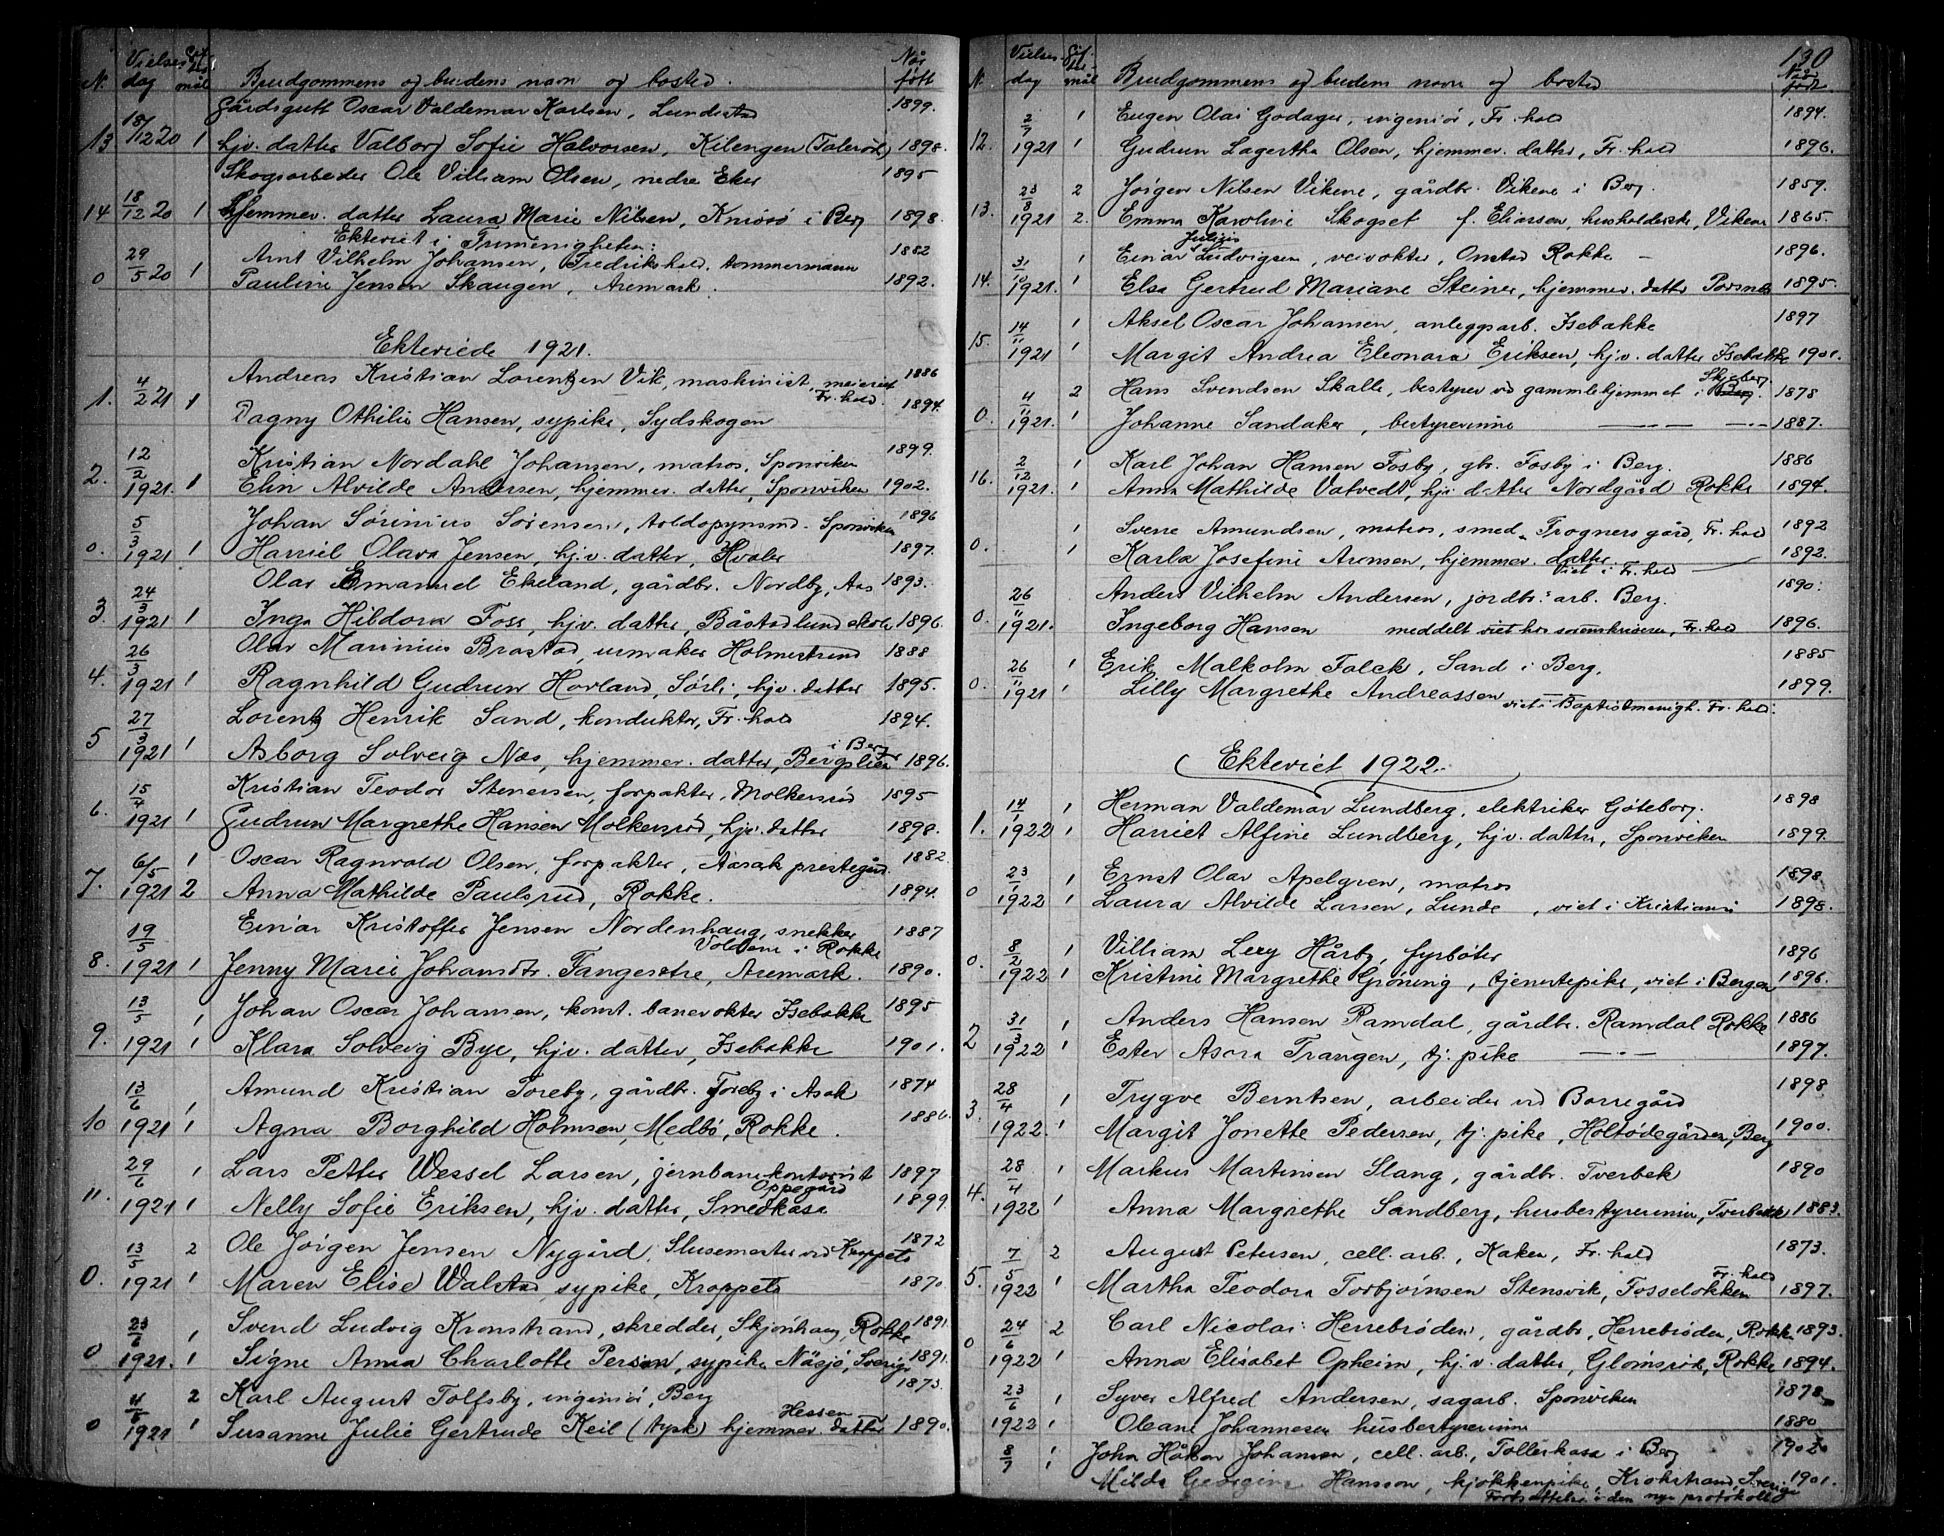 N. Vielses dag Git. tes mål Brudgommens og brudens navn og bosted. Når født
Gårdsgutt Oscar Valdemar Karlsen, Lundestad 1899.
13 18/12 20 1 hjv. datter Valborg Sofie Halvorsen, Kilengen (Tolerød) 1898.
Skogsarbeder Ole Villiam Olsen, nedre Eker 1895
14 18/12 20 1 Hjemmev. datter Laura Marie Nilsen, Knivsö i Berg 1898.
Ekteviet i Frimenigheten:
Arnt Vilhelm Johansen, Fredrikshald. tommermann 1882
0 29/5 20 1 Pauline Jensen Skaugen, Aremark. 1892.
Ekteviede 1921.
Andreas Kristian Lorentzen Vik, maskinist, meieriet Fr. hald. 1886
1. 4/2 21 1 Dagny Othilie Hansen, sypike, Sydskogen 1894.
Kristian Nordahl Johansen, matros, Sponviken 1899.
2. 12/2 1921. 1 Elin Alvilde Andersen, hjemmev. datter, Sponviken 1902.
Johan Sörinius Sörensen, toldopynsmd. Sponviken 1896
0. 5/3 1921 1 Harriet Olava Jensen, hj.v. datter, Hvaler 1897.
Olav Emanuel Ekeland, gårdbr. Nordby, Aas 1893.
3. 24/3 1921 1 Inga Hildora Foss, hjv. datter, Båstadlund skole 1896.
Olav Marinius Brastad, urmaker Holmestrand 1888
4. 26/3 1921 1 Ragnhild Gudrun Hovland, Sörli, hjv. datter 1895.
Lorentz Henrik Sand, konduktör, Fr. hald 1894.
5 27/3 1921 1 Asborg Solveig Næs, hjemmev. datter, Bergslien i Berg 1896.
Kristian Teodor Stenersen, forpakter, Molkersröd 1895
6. 15/4 1921 1 Gudrun Margrethe Hansen Molkersröd, hjv. datter 1898.
6/5 1 Oscar Ragnvald Olsen, forpakter, Aasak prestegård 1882.
7. 1921 2 Anna Mathilde Paulsrud, Rokke. 1894.
Einar Kristoffer Jensen Nordenhaug, snekker Voldene i Rokke 1887
8. 19/5 1921 1 Jenny Marie Johansdtr. Tangesetre, Aremark. 1890.
13/5 1 Johan Oscar Johansen, konst. banevokter Isebakke 1895
9. 1921 1 Klara Solveig Bye, hjv. datter, Isebakke 1901.
13/6 1 Amund Kristian Toreby, gårdbr. Toreby i Asak 1874
10 1921 1 Agna Borghild Holmsen, Medbö, Rokke. 1886.
29/6 1 Lars Petter Wessel Larsen, jernbanekontorist Oppegård 1897
11. 1921 1 Nelly Sofie Eriksen, hjv. datter, Smedkasa 1899
13/5 2 Ole Jörgen Jensen Nygård, Slusemester ved Kroppets 1872
0. 1921 1 Maren Elise Walstad sypike, Kroppets 1870
23/6 1 Svend Ludvig Kronstrand, skredder, Skjönhaug, Rokke 1891.
0 1921. 1 Signe Anna Charlotte Person, sypike Näsjö, Sverige 1891.
4/8 2 Karl August Tolfsby, ingeniör, Berg 1873.
0 1921 1 Susanne Julie Gertrude Keil (tysk) hjemmev. datter Hessen 1890.
130
N. Vielses dag Git. tes mål Brudgommens og brudens navn og bosted Når født
2/7 1 Eugen Olai Godager, ingeniör, Fr. hald 1894.
12. 1921 1 Gudrun Lagertha Olsen, hjemmev. datter, Fr. hald 1896.
23/8 2 Jörgen Nilsen Vikene, gårdbr. Vikene i Berg. 1859.
13. 1921 2. Emma Karoline Skogset f. Eliassen, husholderske, Vikene 1865.
31/10 1 Einar Julius Ludvigsen, veivokter, Onstad Rokke — 1896.
14. 1921. 1 Elsa Gertrud Mariane Steiner, hjemmev. datter Porsnes 1895.
14/11 1 Aksel Oscar Johansen, anleggsarb. Isebakke 1897
15. 1921 1 Margit Andrea Eleonara Eriksen, hjv. datter Isebakke 1901.
4/11 2 Hans Svendsen Skalle, bestyrer ved gamlehjemmet i Skjeberg. 1878
0. 1921. 1 Johanne Sandaker, bestyrerinne — — - — 1887.
2/12 1 Karl Johan Hansen Fosby, gbr. Fosby i Berg. 1886
16. 1921. 1 Anna Mathilde Vatvedt, hjv. datter Nordgård Rokke 1894.
1 Sverre Amundsen, matros, smed, Trogners gård, Fr. hald 1892
0. 1 Karla Josefine Aronsen, hjemmev. datter. viet i Fr. hald — 1892.
26/11 Anders Vilhelm Andersen, jordbr. arb. Berg. 1890.
0. 1921. Ingeborg Hansen meddelt viet hos sorenskriveren, Fr. hald 1896.
26/11 1 Erik Malkolm Falck, Sand i Berg. 1885
0. 1921 1 Lilly Margrethe Andreassen viet i Baptistmenigh. Fr. hald. 1899.
Ekteviet 1922.
14/1 1 Herman Valdemar Lundberg, elektriker Göteborg. 1898
1. 1922 1 Harriet Alfine Lundberg, hj.v. datter, Sponviken 1899.
23/1 1 Ernst Olav Apelgren, matros 1898
0 1922 1 Laura Alvilde Larsen, Lunde, viet i Kristiania 1898.
8/2 1 Villiam Levy Hårby, fyrböter 1896
0. 1922 1 Kristine Margrethe Gröning, tjenestepike, viet i Bergen 1896.
31/3 1 Anders Hansen Ramdal, gårdbr. Ramdal Rokke 1886
2 1922 1 Ester Asora Trangen, tj. pike — . — 1897.
28/4 1 Trygve Berntsen, arbeider ved Borregård 1898
3. 1922. 1 Margit Jonette Pedersen, tj. pike, Holtödegården, Berg 1900.
28/4 1 Markus Martinsen Slang, gårdbr. Tverbek 1890
4. 1922 1 Anna Margrethe Sandberg, husbestyrerinne, Tverbekk 1883.
7/5 2 August Petersen, cell. arb., Kaken, Fr. hald 1873.
5. 1922 1 Martha Teodora Torbjörnsen Stensvik, Fosselökken Fr. hald 1897.
24/6 2 Carl Nicolai Herrebröden, gårdbr, Herrebröden, Rokke 1893.
0 1922 1 Anna Elisabet Opheim, hj.v. datter, Glomsröd, Rokke 1894.
23/6 1 Syver Alfred Andersen, sagarb. Sponviken 1878
1922 1 Oleane Johannesen husbestyrerinne 1880
8/7 1 John Håkon Johansen, cell. arb., Tollerkasa i Berg 1902
1 Milda Georgine Hansson, kjökkenpike, Krokstrand, Sverige 1901.
Fortsettelse i den nye protokoll